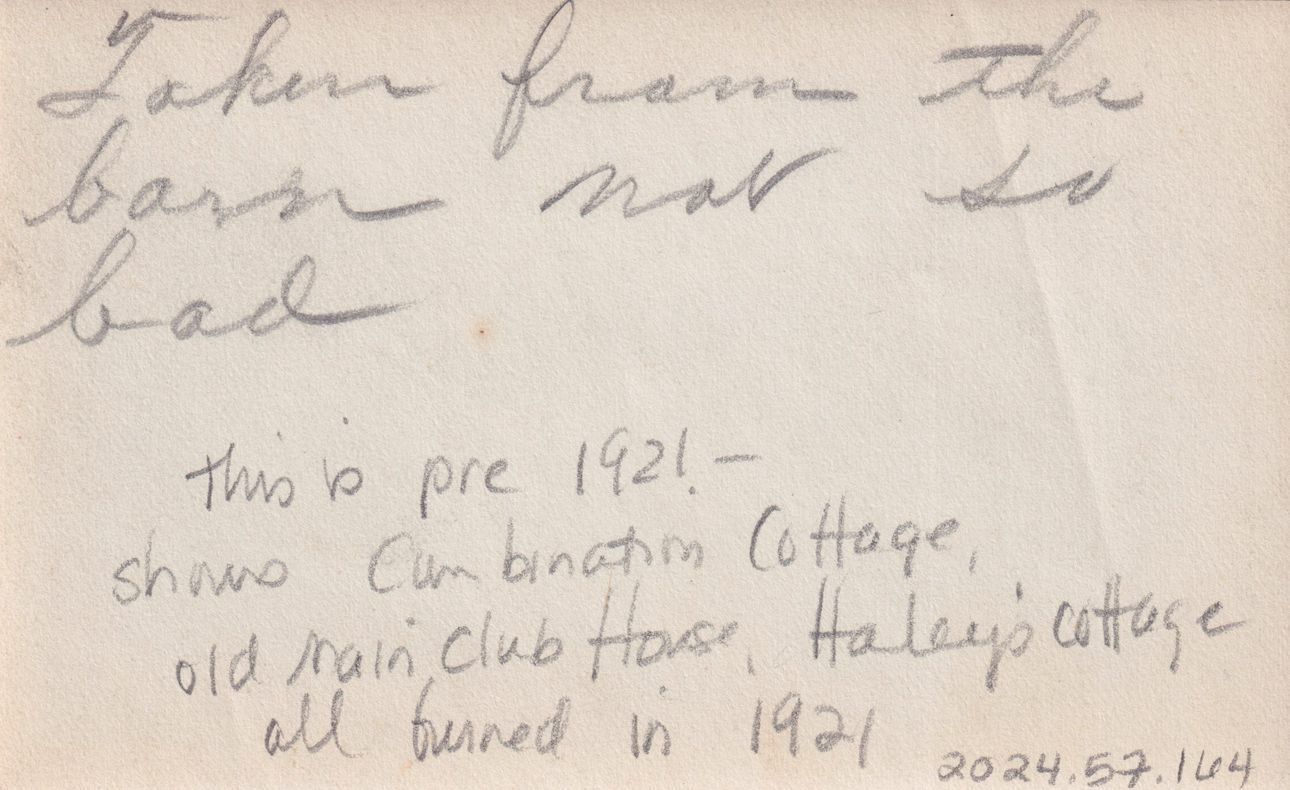 Taken from the
barn not so
bad
this is pre 1921. –
shows Combination Cottage,
old main Club House, Haley's cottage
all burned in 1921
2024.57.164